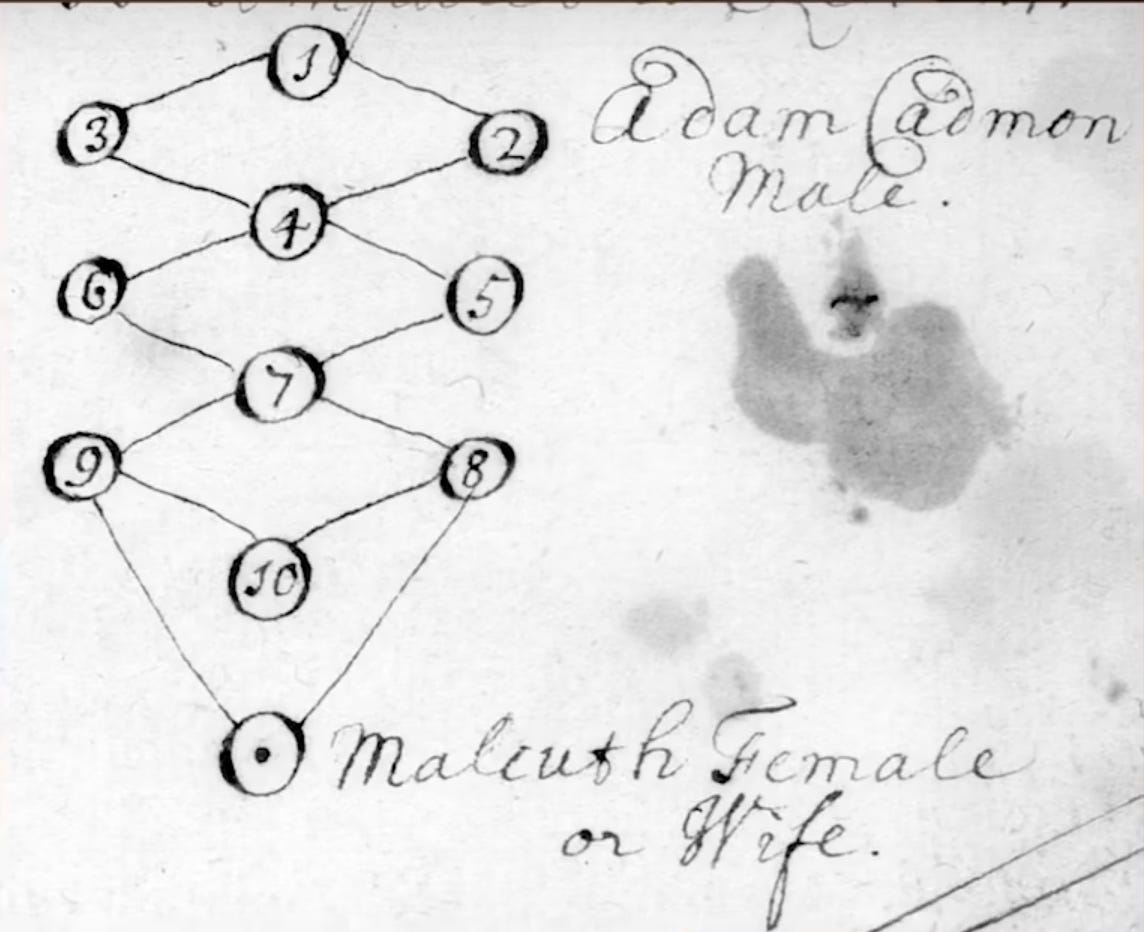 1
3
2
Adam Cadmon
Male.
4
6
5
7
9
8
10
Malcuth Female
or Wife.